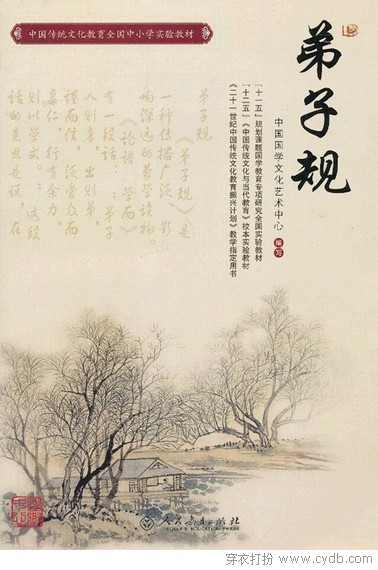 中国传统文化教育全国中小学实验教材
弟子规
中国国学文化艺术中心 编写
“十一五”规划课题国学教育专项研究全国实验教材
“十二五”《中国传统文化与当代教育》校本实验教材
《二十一世纪中国传统文化教育振兴计划》教学指定用书
弟子规
《弟子规》是
一种传播广泛、影
响深远的蒙学读物。
《论语·学而》
有一段话：“弟子
入则孝，出则弟，
谨而信，泛爱众而
亲仁，行有余力，
则以学文。”这段
话的意思是说，在
人民教育出版社
穿衣打扮 - www.cydb.com